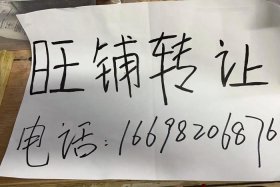 旺铺转让
电话:16698206876